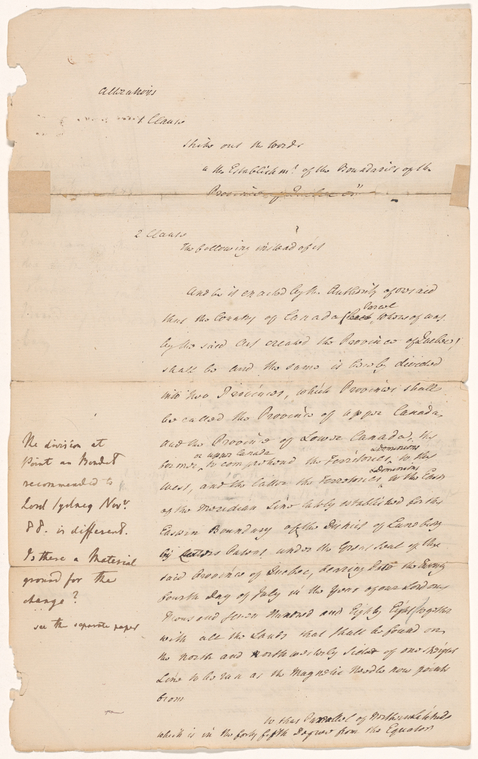 Alterations
Clause
Strike out the words
"the Establishmt. of the Boundaries of the
Province of Quebec or"
2 Clause
The following instead of it
And be it enacted by the Authority aforesaid
that the Country of Canada
by the said Act created the Province of Quebec,
shall be and the same is hereby divided
into two Provinces, which Provinces shall
be called the Province of upper Canada
and the Province of Lower Canada, the
or upper Canada Dominions
former, to comprehend the Territories, to the
Dominions
West, and the latter the Territories, to the East
of the Meridian Line lately established for the
Eastern Boundary of the District of Lunebourg
by Letters Patent under the Great Seal of the
said Province of Quebec, bearing Date the twenty
fourth Day of July in the Year of our Lord one
Thousand seven Hundred and Eighty Eight, together
with all the Lands that shall be found on
the North and Northwesterly Side of one Right
Line to be run as the Magnetic Needle now points
from
to that Parallel of North Latitude
which is in the forty fifth Degree from the Equator
The division at
Point au Bodet
recommended to
Lord Sydney Novr.
88. is different.
Is there a Material
ground for the
change?
see the separate paper